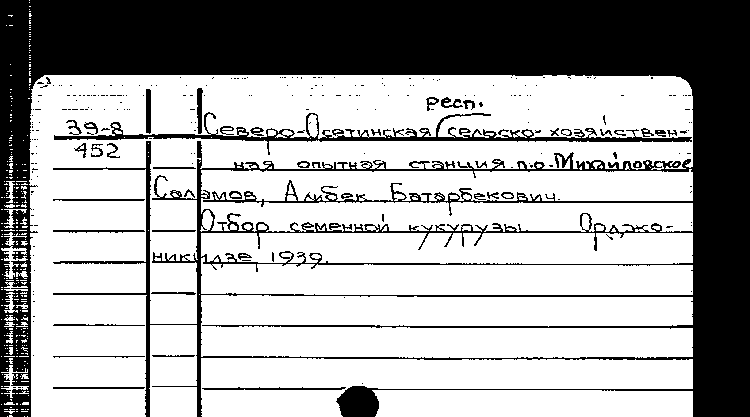 респ.
39-8 Северо-Осетинская сельско-хозяйствен-
452 ная опытная станция п.о. Михайловское
Саламов, Алибек Батарбекович.
Отбор семенной кукурузы. Орджо-
никидзе, 1939.